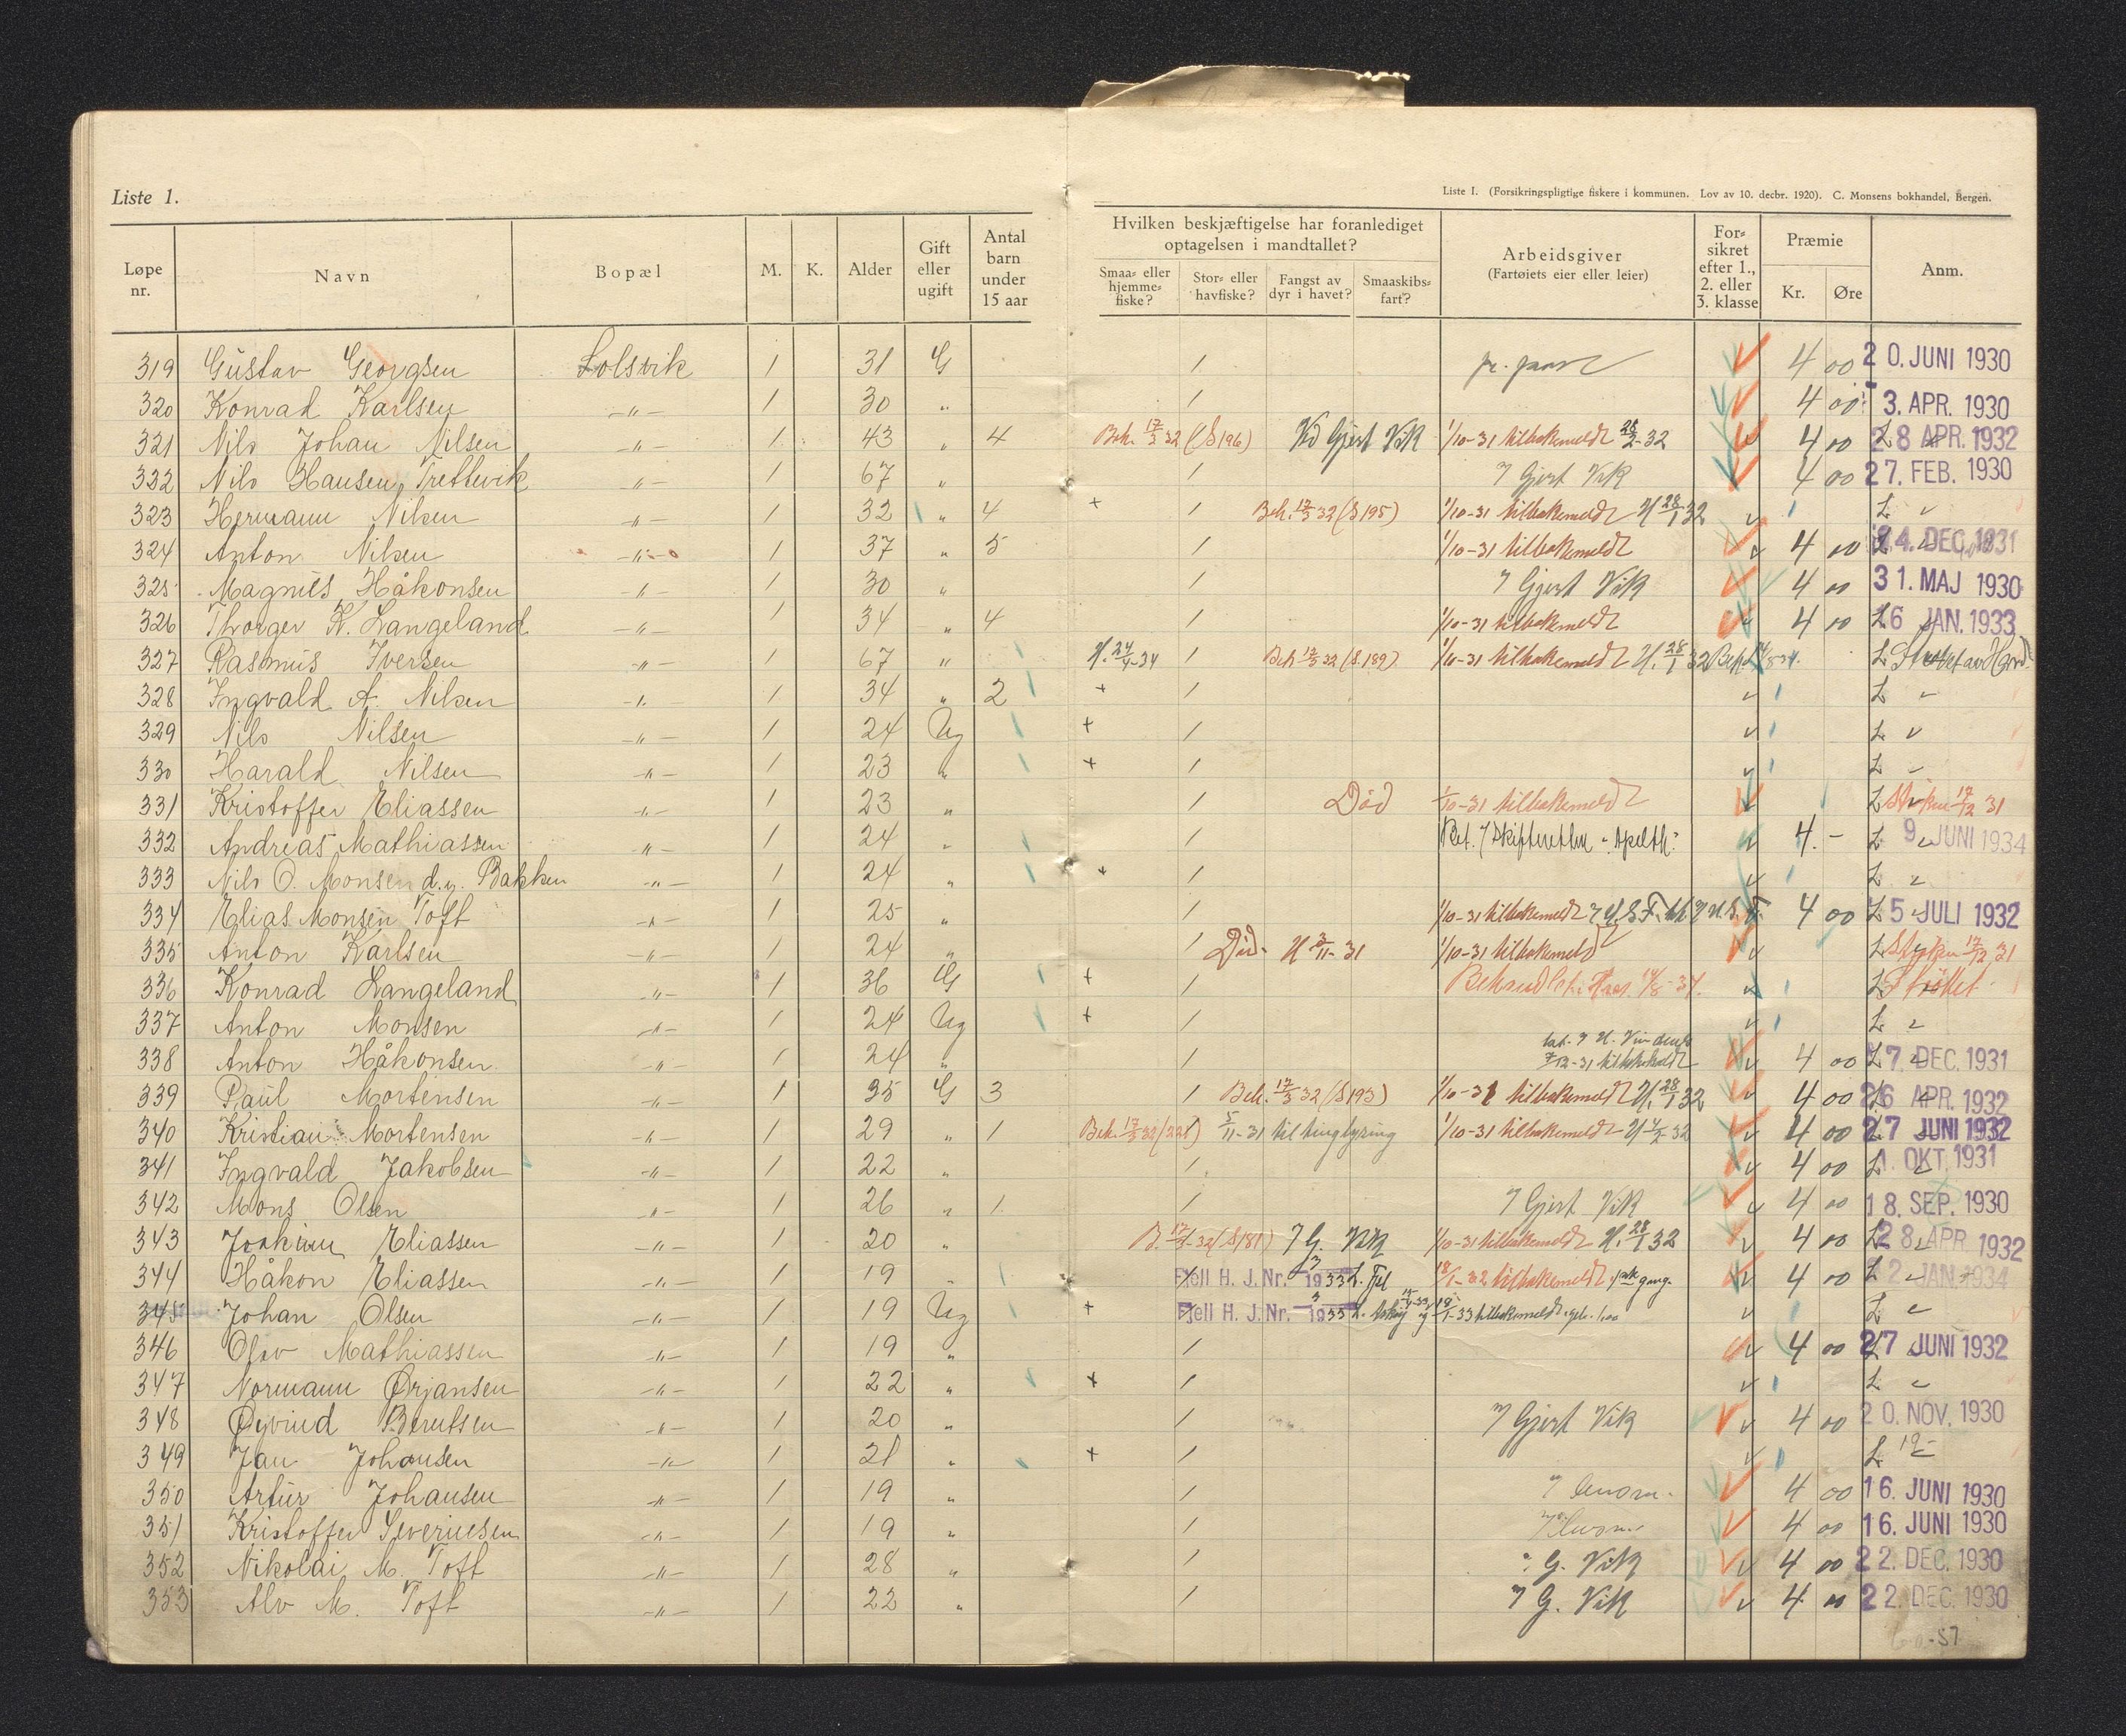 Liste 1.
Liste I. (Forsikringspligtige fiskere i kommunen. Lov av 10. decbr. 1920). C. Monsens bokhandel, Bergen.
Løpe nr. Navn Bopæl M. K. Alder Gift eller ugift Antal barn under 15 aar Hvilken beskjæftigelse har foranlediget optagelsen i mandtallet? Smaa- eller hjemme-fiske? Stor- eller havfiske? Fangst av dyr i havet? Smaaskibs-fart? Arbeidsgiver (Fartøiets eier eller leier) For-sikret efter 1., 2. eller 3. klasse Præmie Kr. Øre Anm.
319 Gustav Georgsen Solsvik 1 31 G 1 4 00 20. JUNI 1930
320 Konrad Karlsen -"- 1 30 " 1 4 00 3. APR. 1930
321 Nils Johan Nilsen -"- 1 43 " 4 Beh. 17/3 32 (S 196) Gjert Vik 1/10-31 tilbakemeldt 4 00 28 APR. 1932
322 Nils Hansen Trettevik -"- 1 67 " 1 Gjert Vik 4 00 27. FEB. 1930
323 Hermann Nilsen -"- 1 32 " 4 + 1 Beh. 17/3 32 (S 195) 1/10-31 tilbakemeldt 28/1 32 L
324 Anton Nilsen -"- 1 37 " 5 1 1/10-31 tilbakemeldt 4 00 24. DEC. 1931
325 Magnus Håkonsen -"- 1 30 " 1 Gjert Vik 4 00 31. MAJ 1930
326 Thorger K. Langeland -"- 1 34 " 4 1 1/10-31 tilbakemeldt 4 00 L 6 JAN. 1933
327 Rasmus Iversen -"- 1 67 " 1 Beh 17/3 32 (S. 189) 1/10-31 tilbakemeldt 28/1 32 L
328 Ingvald A. Nilsen -"- 1 34 " 2 + 1 L
329 Nils Nilsen -"- 1 24 Ug + 1 L
330 Harald Nilsen -"- 1 23 " + 1 L
331 Kristoffer Eliassen -"- 1 23 " 1 Död 1/10-31 tilbakemeldt L 17/12 31
332 Andreas Mathiassen -"- 1 24 " 1 4.- L 9 JUNI 1934
333 Nils O. Monsen d.y. Bakken -"- 1 24 " + 1 L
334 Elias Monsen Toft -"- 1 25 " 1 1/10-31 tilbakemeldt 4 00 5 JULI 1932
335 Anton Karlsen -"- 1 24 " 1 Död 1/10-31 tilbakemeldt L 17/12 31
336 Konrad Langeland -"- 1 36 G + 1 L Strøket
337 Anton Monsen -"- 1 24 Ug + 1 L
338 Anton Håkonsen -"- 1 24 " 1 4 00 7. DEC. 1931
339 Paul Mortensen -"- 1 35 G 3 1 Beh. 17/3 32 (S 193) 1/10-31 tilbakemeldt 28/1 32 4 00 26 APR. 1932
340 Kristian Mortensen -"- 1 29 " 1 Beh. 17/3 32 5/11-31 til tinglysning 1/10-31 tilbakemeldt 4 00 27 JUNI 1932
341 Ingvald Jakobsen -"- 1 22 " 1 4 00 1. OKT. 1931
342 Mons Olsen -"- 1 26 " 1 1 Gjert Vik 4 00 18. SEP. 1930
343 Joakim Eliassen -"- 1 20 " (S 181) G. Vik 1/10-31 tilbakemeldt 28/1 32 4 00 28 APR. 1932
344 Håkon Eliassen -"- 1 19 " Fjell H. J. Nr. 1933 18/1-32 tilbakemeldt 4 00 L 2 JAN. 1934
345 Johan Olsen -"- 1 19 Ug + Fjell H. J. Nr. 1933 tilbakemeldt L
346 Olav Mathiassen -"- 1 19 " 1 4 00 27 JUNI 1932
347 Normann Ørjansen -"- 1 22 " + 1 L
348 Øyvind Berntsen -"- 1 20 " 1 Gjert Vik 4 00 20. NOV. 1930
349 Jan Johansen -"- 1 21 " + L
350 Artur Johansen -"- 1 19 " 1 4 00 16. JUNI 1930
351 Kristoffer Severinsen -"- 1 19 " 1 4 00 16. JUNI 1930
352 Nikolai M. Toft -"- 1 28 " 1 G. Vik 4 00 22. DEC. 1930
353 Alv M. Toft -"- 1 22 " 1 G. Vik 4 00 22. DEC. 1930